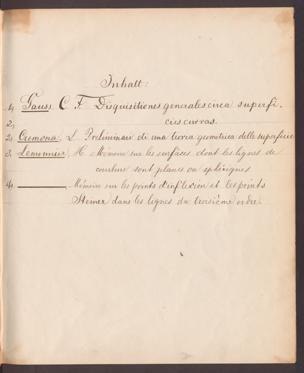 Inhalt:
1, Gauss, C. F. Disquisitiones generales circa superfi-
2, cies curvas.
2, Cremona, L. Preliminari di una teoria geometrica delle superficie
3, H. Memoire sur les surfaces dont les lignes de
courbure sont planes ou sphériques
4, ——— Mémoire sur les points d'inflexion et les points
Steiner dans les lignes du troisième ordre.